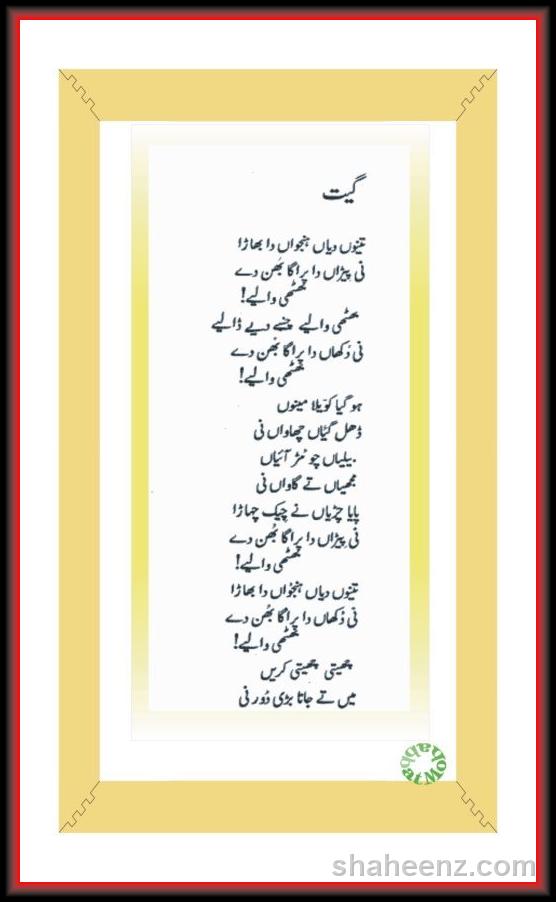 گیت
تینوں دیاں ہنجواں دا بھاڑا
نی پیڑاں دا پراگا بھُن دے
بھٹھی والیے!
بھٹھی والیے چنبے دیے ڈالیے
نی دُکھاں دا پراگا بھُن دے
بھٹھی والیے!
ہو گیا کوَیلا مینوں
ڈھل گئیاں چھاواں نی
بیلیاں چوں مڑ آئیاں
مجھیاں تے گاواں نی
پایا چڑیاں نے چِیک چہاڑا
نی پیڑاں دا پراگا بھُن دے
بھٹھی والیے!
تینوں دیاں ہنجُواں دا بھاڑا
نی دُکھاں دا پراگا بھُن دے
بھٹھی والیے!
چھیتی چھیتی کریں
میں تے جانا بڑی دُور نی
shaheenz.com